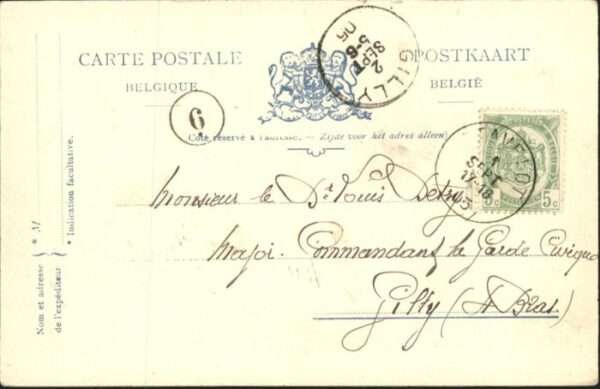 CARTE POSTALE
BELGIQUE
POSTKAART
BELGIË
GILLY
2
SEPT
5-6
05
6
Côté réservé à l'adresse. - Zijde voor het adres alleen.
1
SEPT
17-18
5c 5c
Monsieur le Dr Louis
Major Commandant la Garde Civique
Gilly (4 Bras)
* Indication facultative.
* M
Nom et adresse
de l'expéditeur